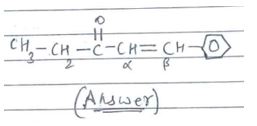 O
CH3-CH2-C-CH=CH-
α β
(Answer)